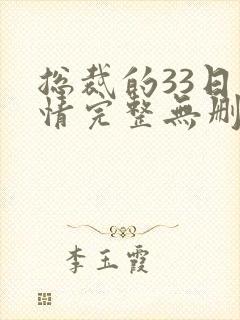 总裁的33日
情完整無删
李玉霞